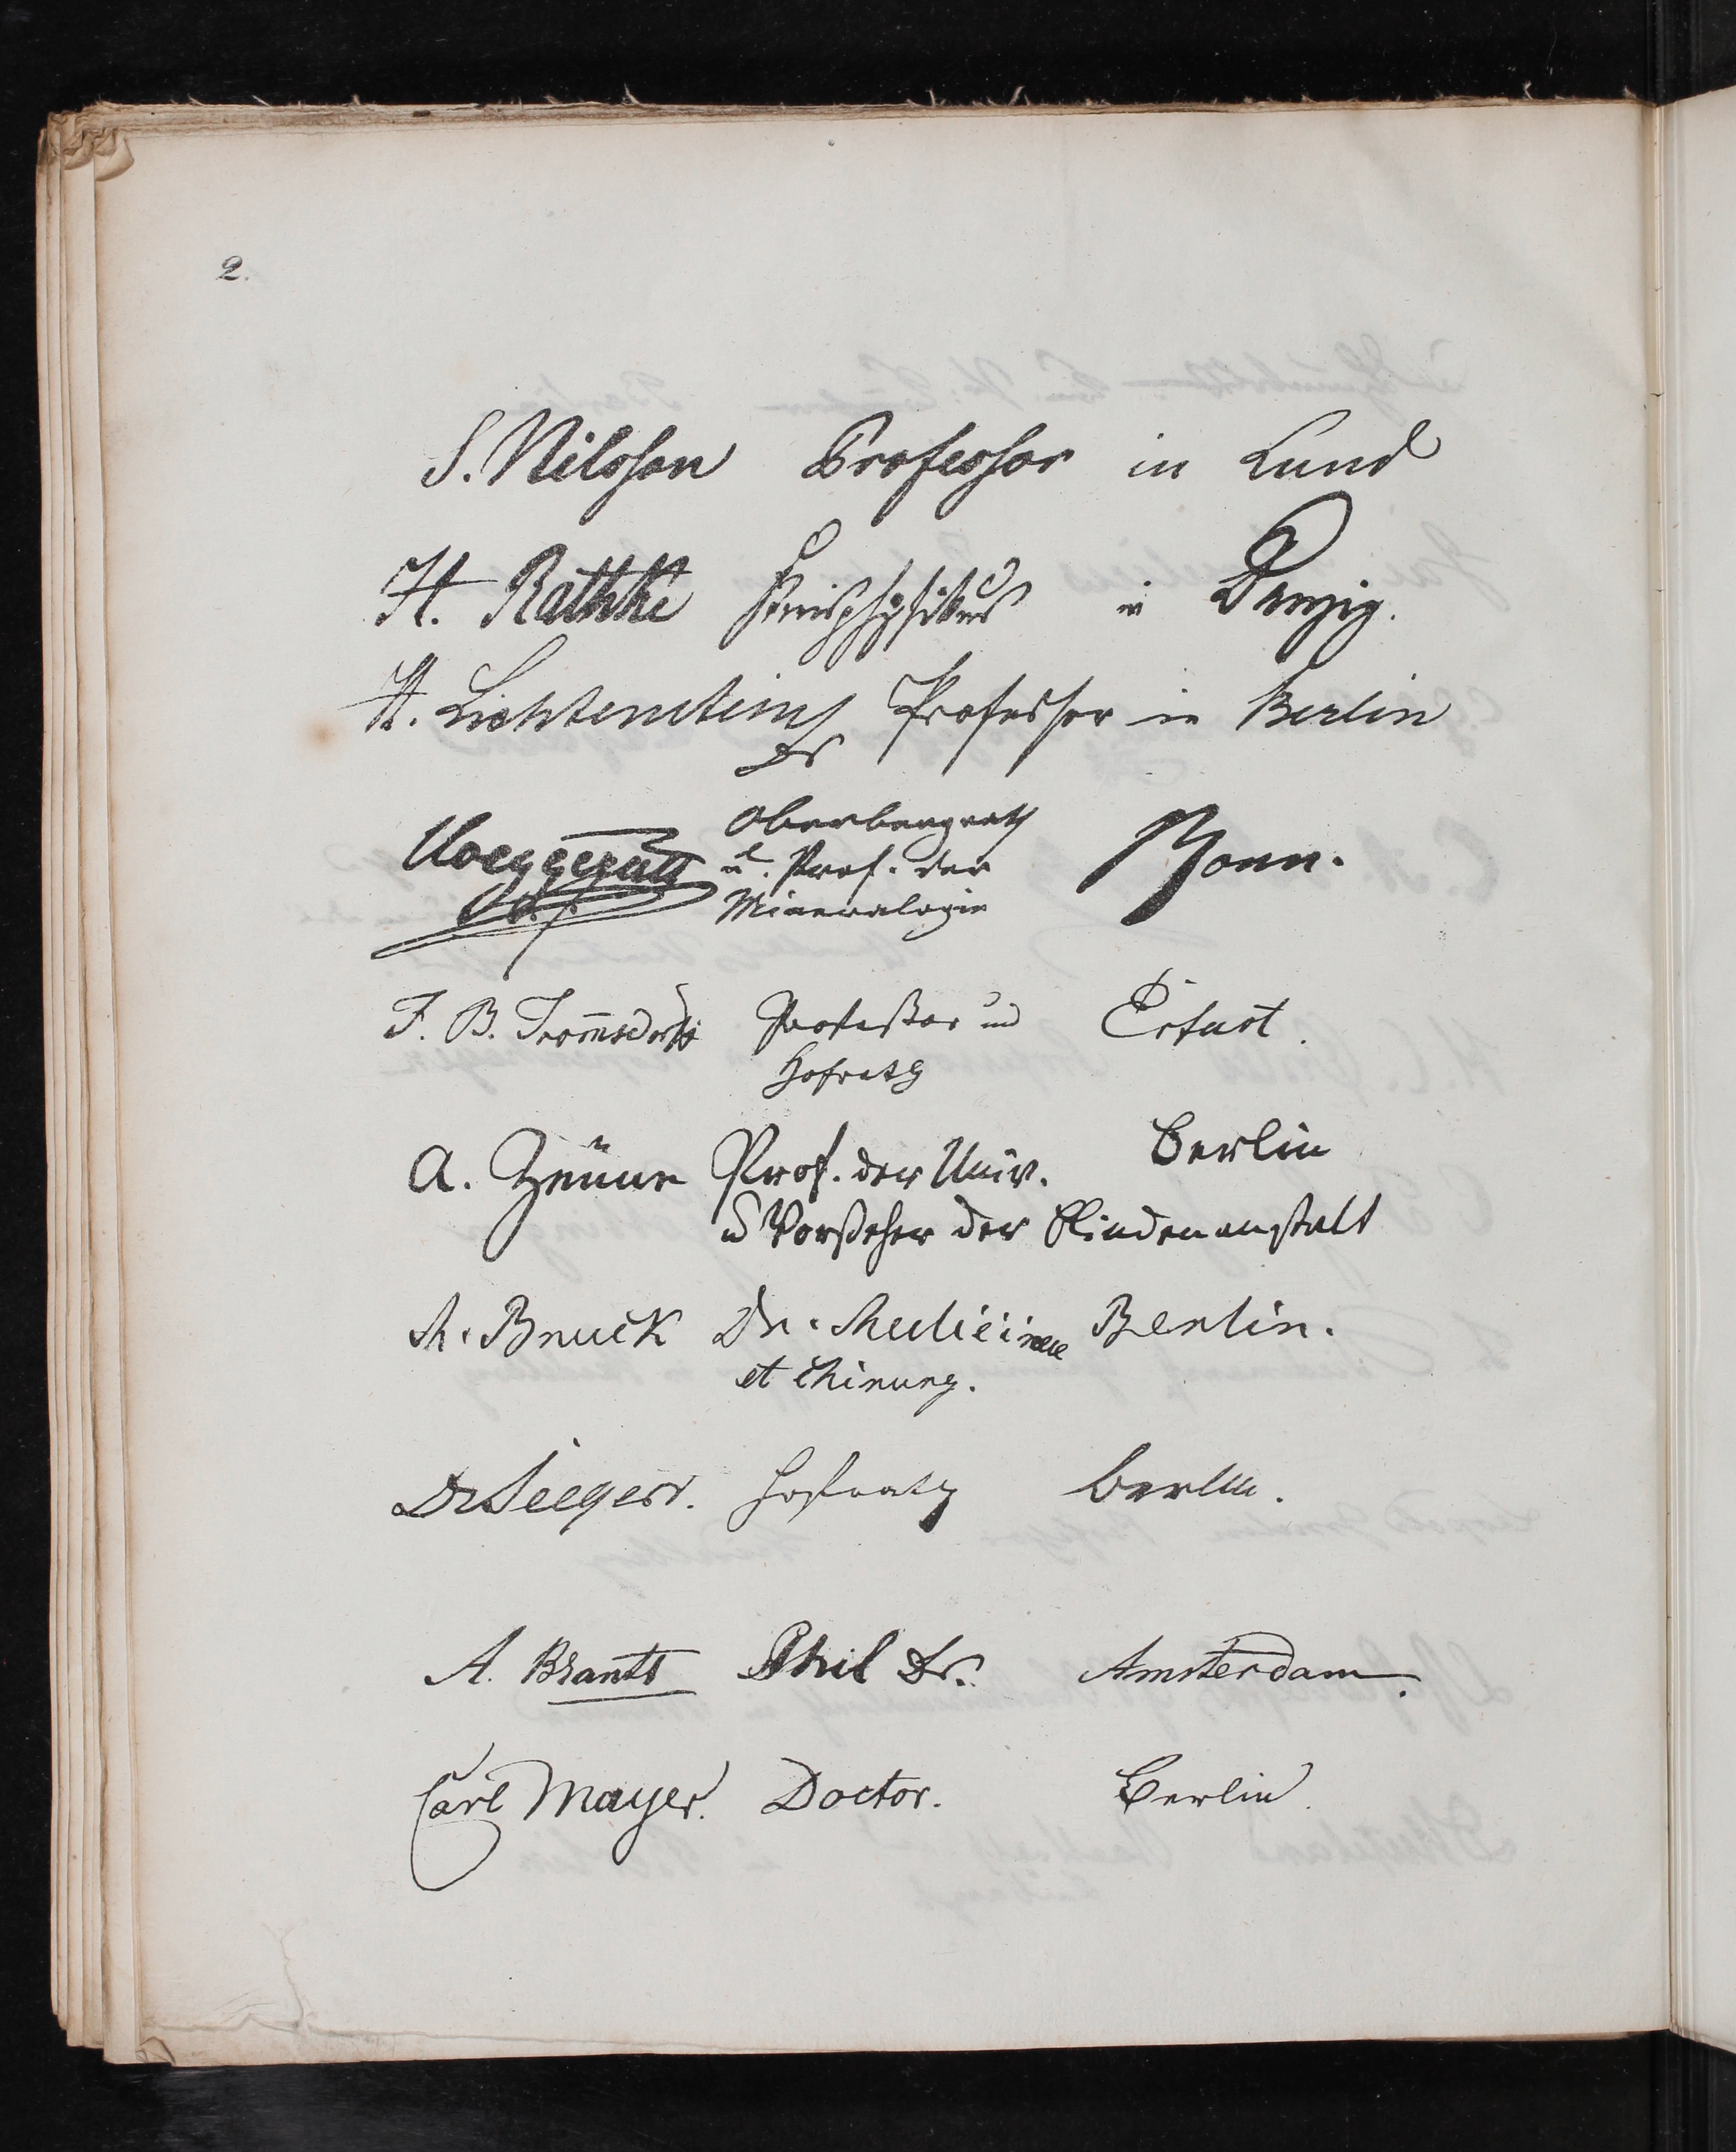 2.
S. Nilsson Professor in Lund
H. Rathke Kreisphysikus in Danzig.
H. Lichtenstein Professor in Berlin
Dr
Noeggerath Oberbergrath Bonn.
u. Prof. der
Mineralogie
J. B. Trom̄sdorff Professor und Erfurt.
Hofrath
A. Zeune Prof. der Univ. Berlin
u Vorsteher der Blindenanstalt
M. Bruck Dr. Medicinae Berlin.
et Chirurg.
Dr Seegert. Hofrath Berlin.
A. Brants Phil Dr. Amsterdam.
Carl Mayer. Doctor. Berlin.